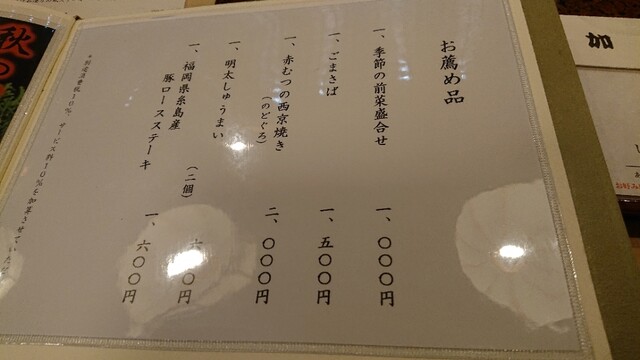 お薦め品
一、季節の前菜盛合せ 一、〇〇〇円
一、ごまさば 一、五〇〇円
一、赤むつの西京焼き 二、〇〇〇円
(のどぐろ)
一、明太しゅうまい (二個) 〇〇円
一、福岡県糸島産
豚ロースステーキ 一、六〇〇円
*別途消費税10%、サービス料10%を加算させていただ
加
秋の